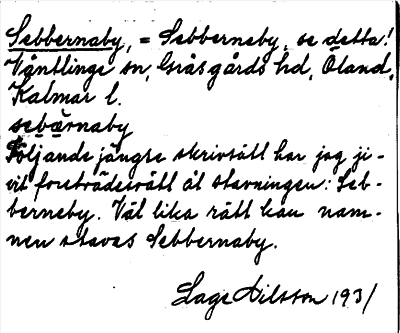 Sebbernaby, = Sebberneby, se detta!
Ventlinge sn, Gräsgårds hd, Öland,
Kalmar l.
sebärnaby
Följande jängre skrivsätt har jag gi-
vit företrädesrätt åt stavningen: Seb-
berneby. Väl lika rätt kan nam-
nen stavas Sebbernaby.
Lage Nilsson 1931